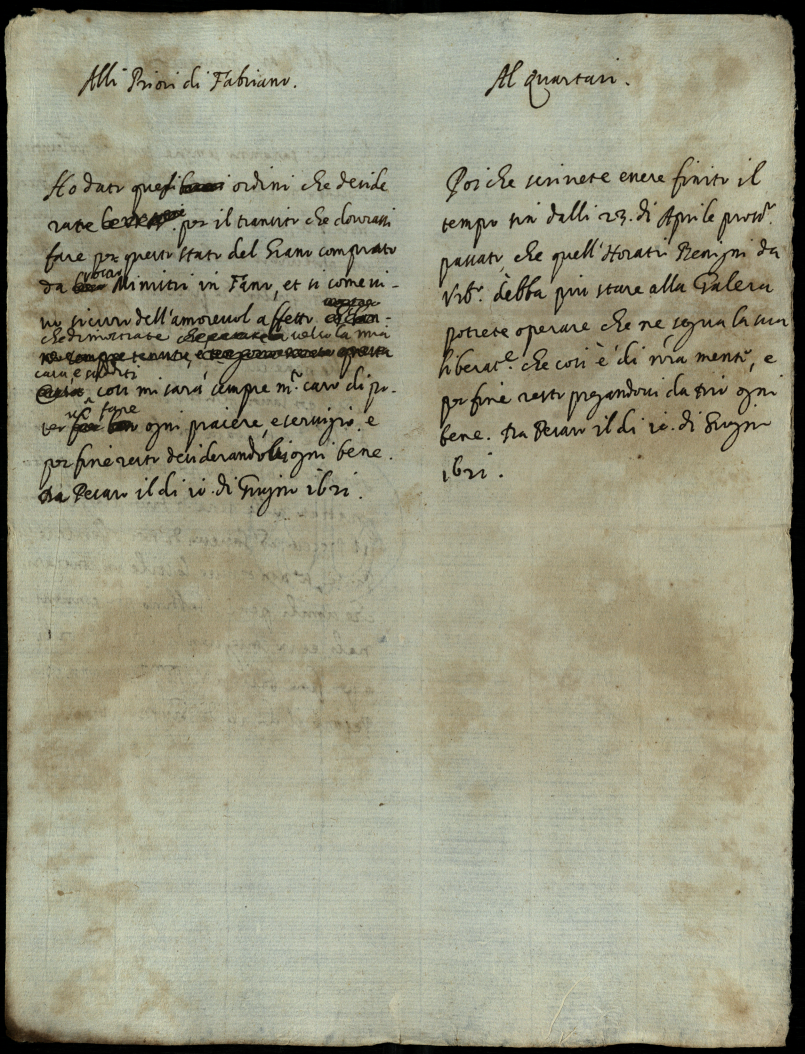 Alli Priori di Fabriano.
Ho dato quesi ordini che deside
rate per il transito che dovrassi
fare per questo stato del Grano comprato
da vostri Ministri in Fano, et si come vi-
vo sicuro dell'amorevol affetto
che dimostrate verso la mia
così mi sarà sempre m.to caro di po-
ter fare ogni piacere, e servigio. e
per fine resto desiderandoli ogni bene.
Da Pesaro il di 10. di Giugno 1621.
Al Quartari.
Poi che scrivete essere finito il
tempo sin dalli 23. di Aprile pross.o
passato, che quell'Horatio Benigni da
Urb.o debba più stare alla Galera
potrete operare che ne segua la sua
liberat.e che così è di n̄ra mente, e
per fine resto pregandovi da Dio ogni
bene. Da Pesaro il di 10. di Giugno
1621.